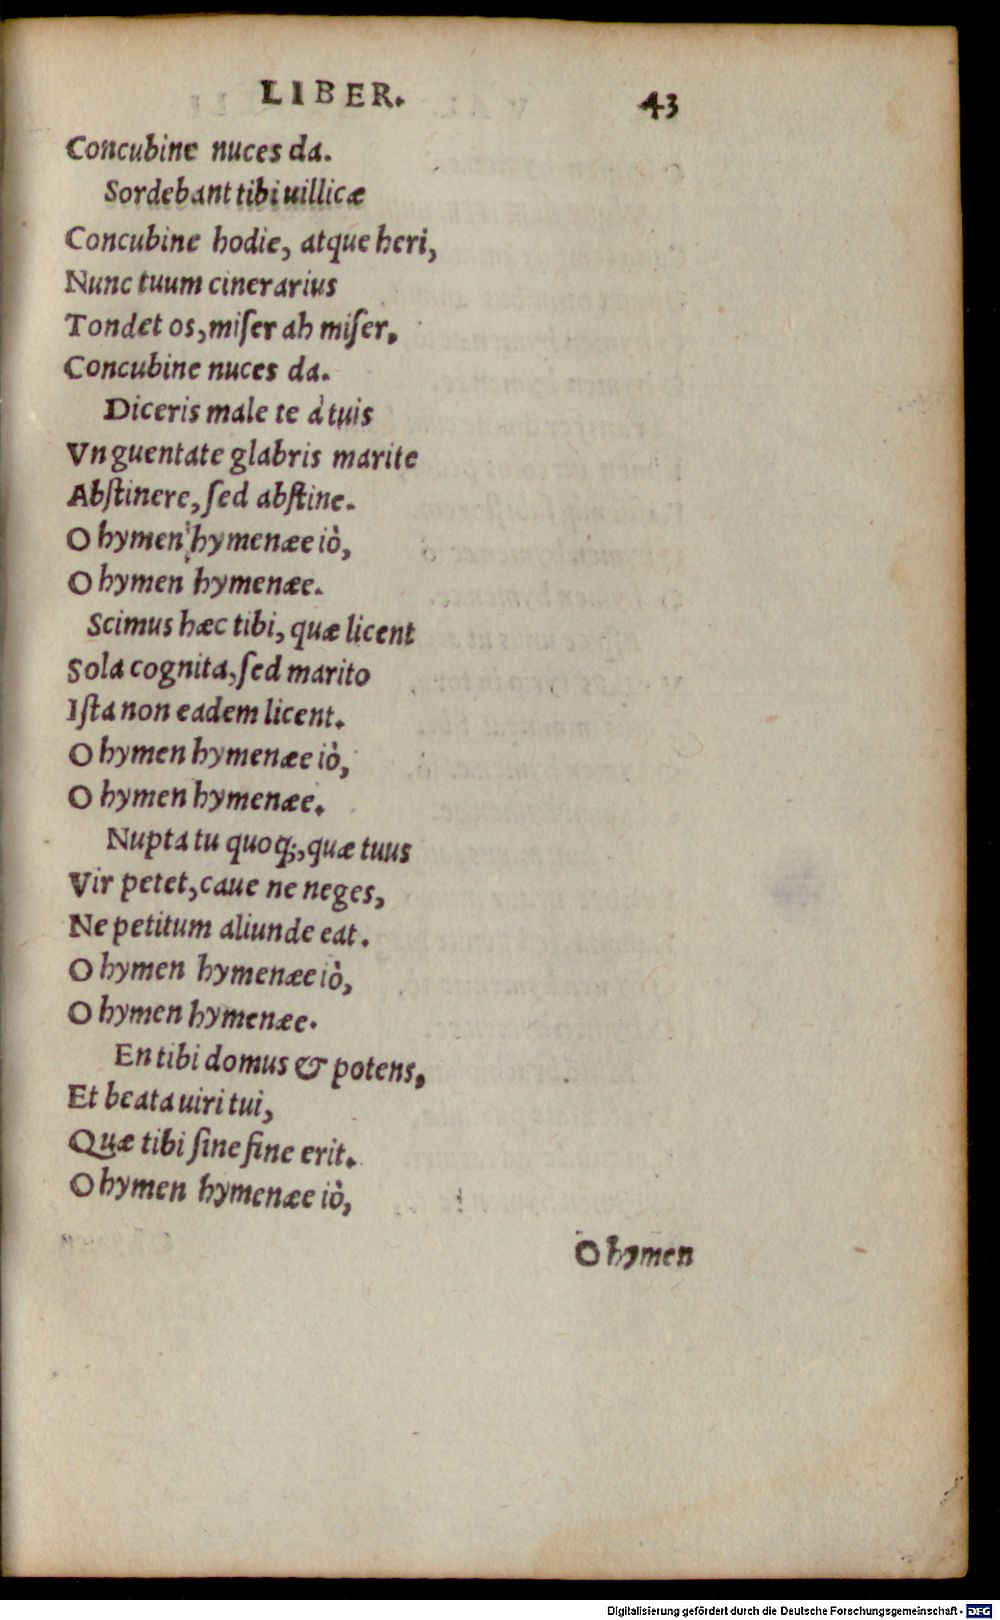 LIBER. 43
Concubine nuces da.
Sordebant tibi uillicæ
Concubine hodie, atque heri,
Nunc tuum cinerarius
Tondet os, miſer ah miſer.
Concubine nuces da.
Diceris male te à tuis
Vnguentate glabris marite
Abſtinere, ſed abſtine.
O hymen hymenæe iò,
O hymen hymenæe.
Scimus hæc tibi, quæ licent
Sola cognita, ſed marito
Iſta non eadem licent.
O hymen hymenæe iò,
O hymen hymenæe.
Nupta tu quoq;, quæ tuus
Vir petet, caue ne neges,
Ne petitum aliunde eat.
O hymen hymenæe iò,
O hymen hymenæe.
En tibi domus & potens,
Et beata uiri tui,
Quæ tibi ſine fine erit.
O hymen hymenæe iò,
O hymen
Digitalisierung gefördert durch die Deutsche Forschungsgemeinschaft - DFG